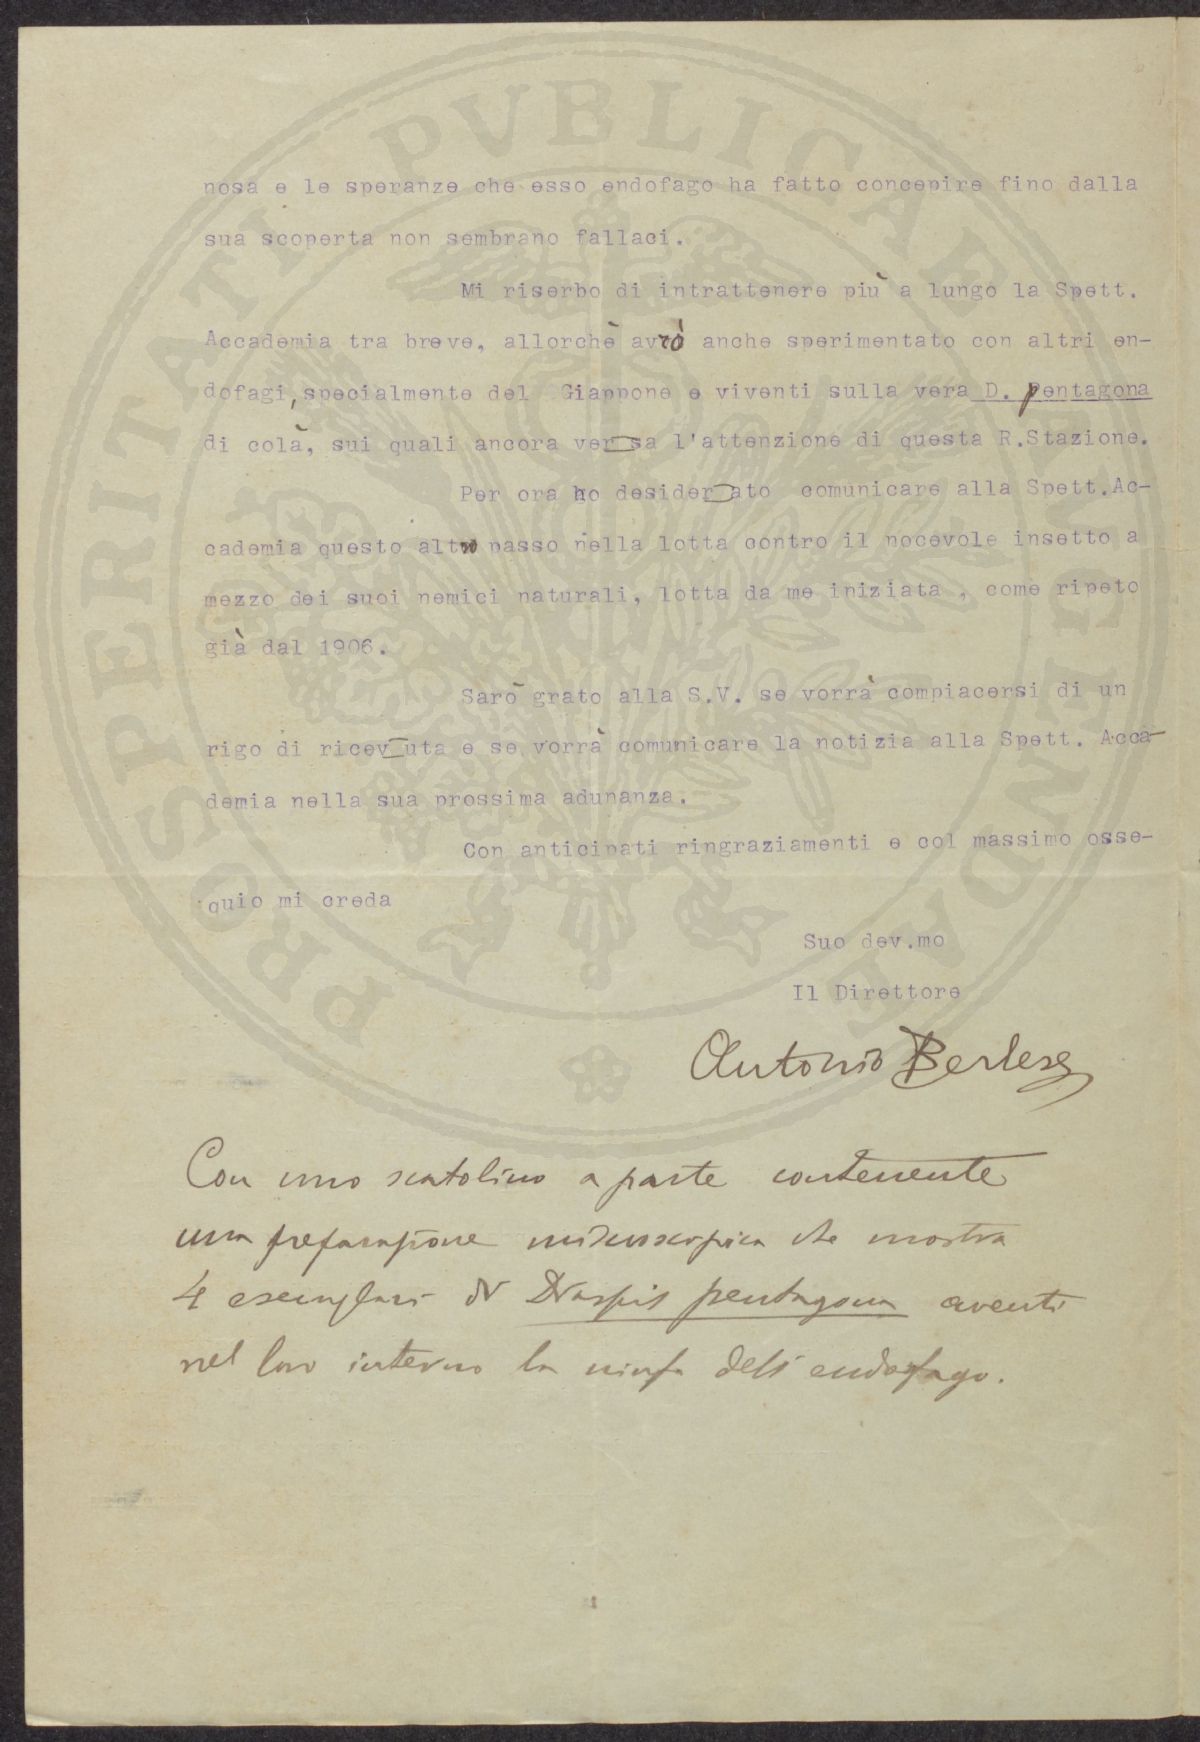 PROSPERITATI PVBLICAE AVGENDAE
nosa e le speranze che esso endofago ha fatto concepire fino dalla
sua scoperta non sembrano fallaci.
Mi riserbo di intrattenere più a lungo la Spett.
Accademia tra breve, allorchè avrò anche sperimentato con altri en-
dofagi, specialmente del Giappone e viventi sulla vera D. pentagona
di colà, sui quali ancora versa l'attenzione di questa R.Stazione.
Per ora ho desiderato comunicare alla Spett.Ac-
cademia questo altro passo nella lotta contro il nocevole insetto a
mezzo dei suoi nemici naturali, lotta da me iniziata, come ripeto
già dal 1906.
Sarò grato alla S.V. se vorrà compiacersi di un
rigo di ricevuta e se vorrà comunicare la notizia alla Spett. Acca-
demia nella sua prossima adunanza.
Con anticipati ringraziamenti e col massimo osse-
quio mi creda
Suo dev.mo
Il Direttore
Antonio Berlese
Con uno scatolino a parte contenente
una preparazione microscopica che mostra
4 esemplari di Diaspis pentagona aventi
nel loro interno la ninfa dell'endofago.